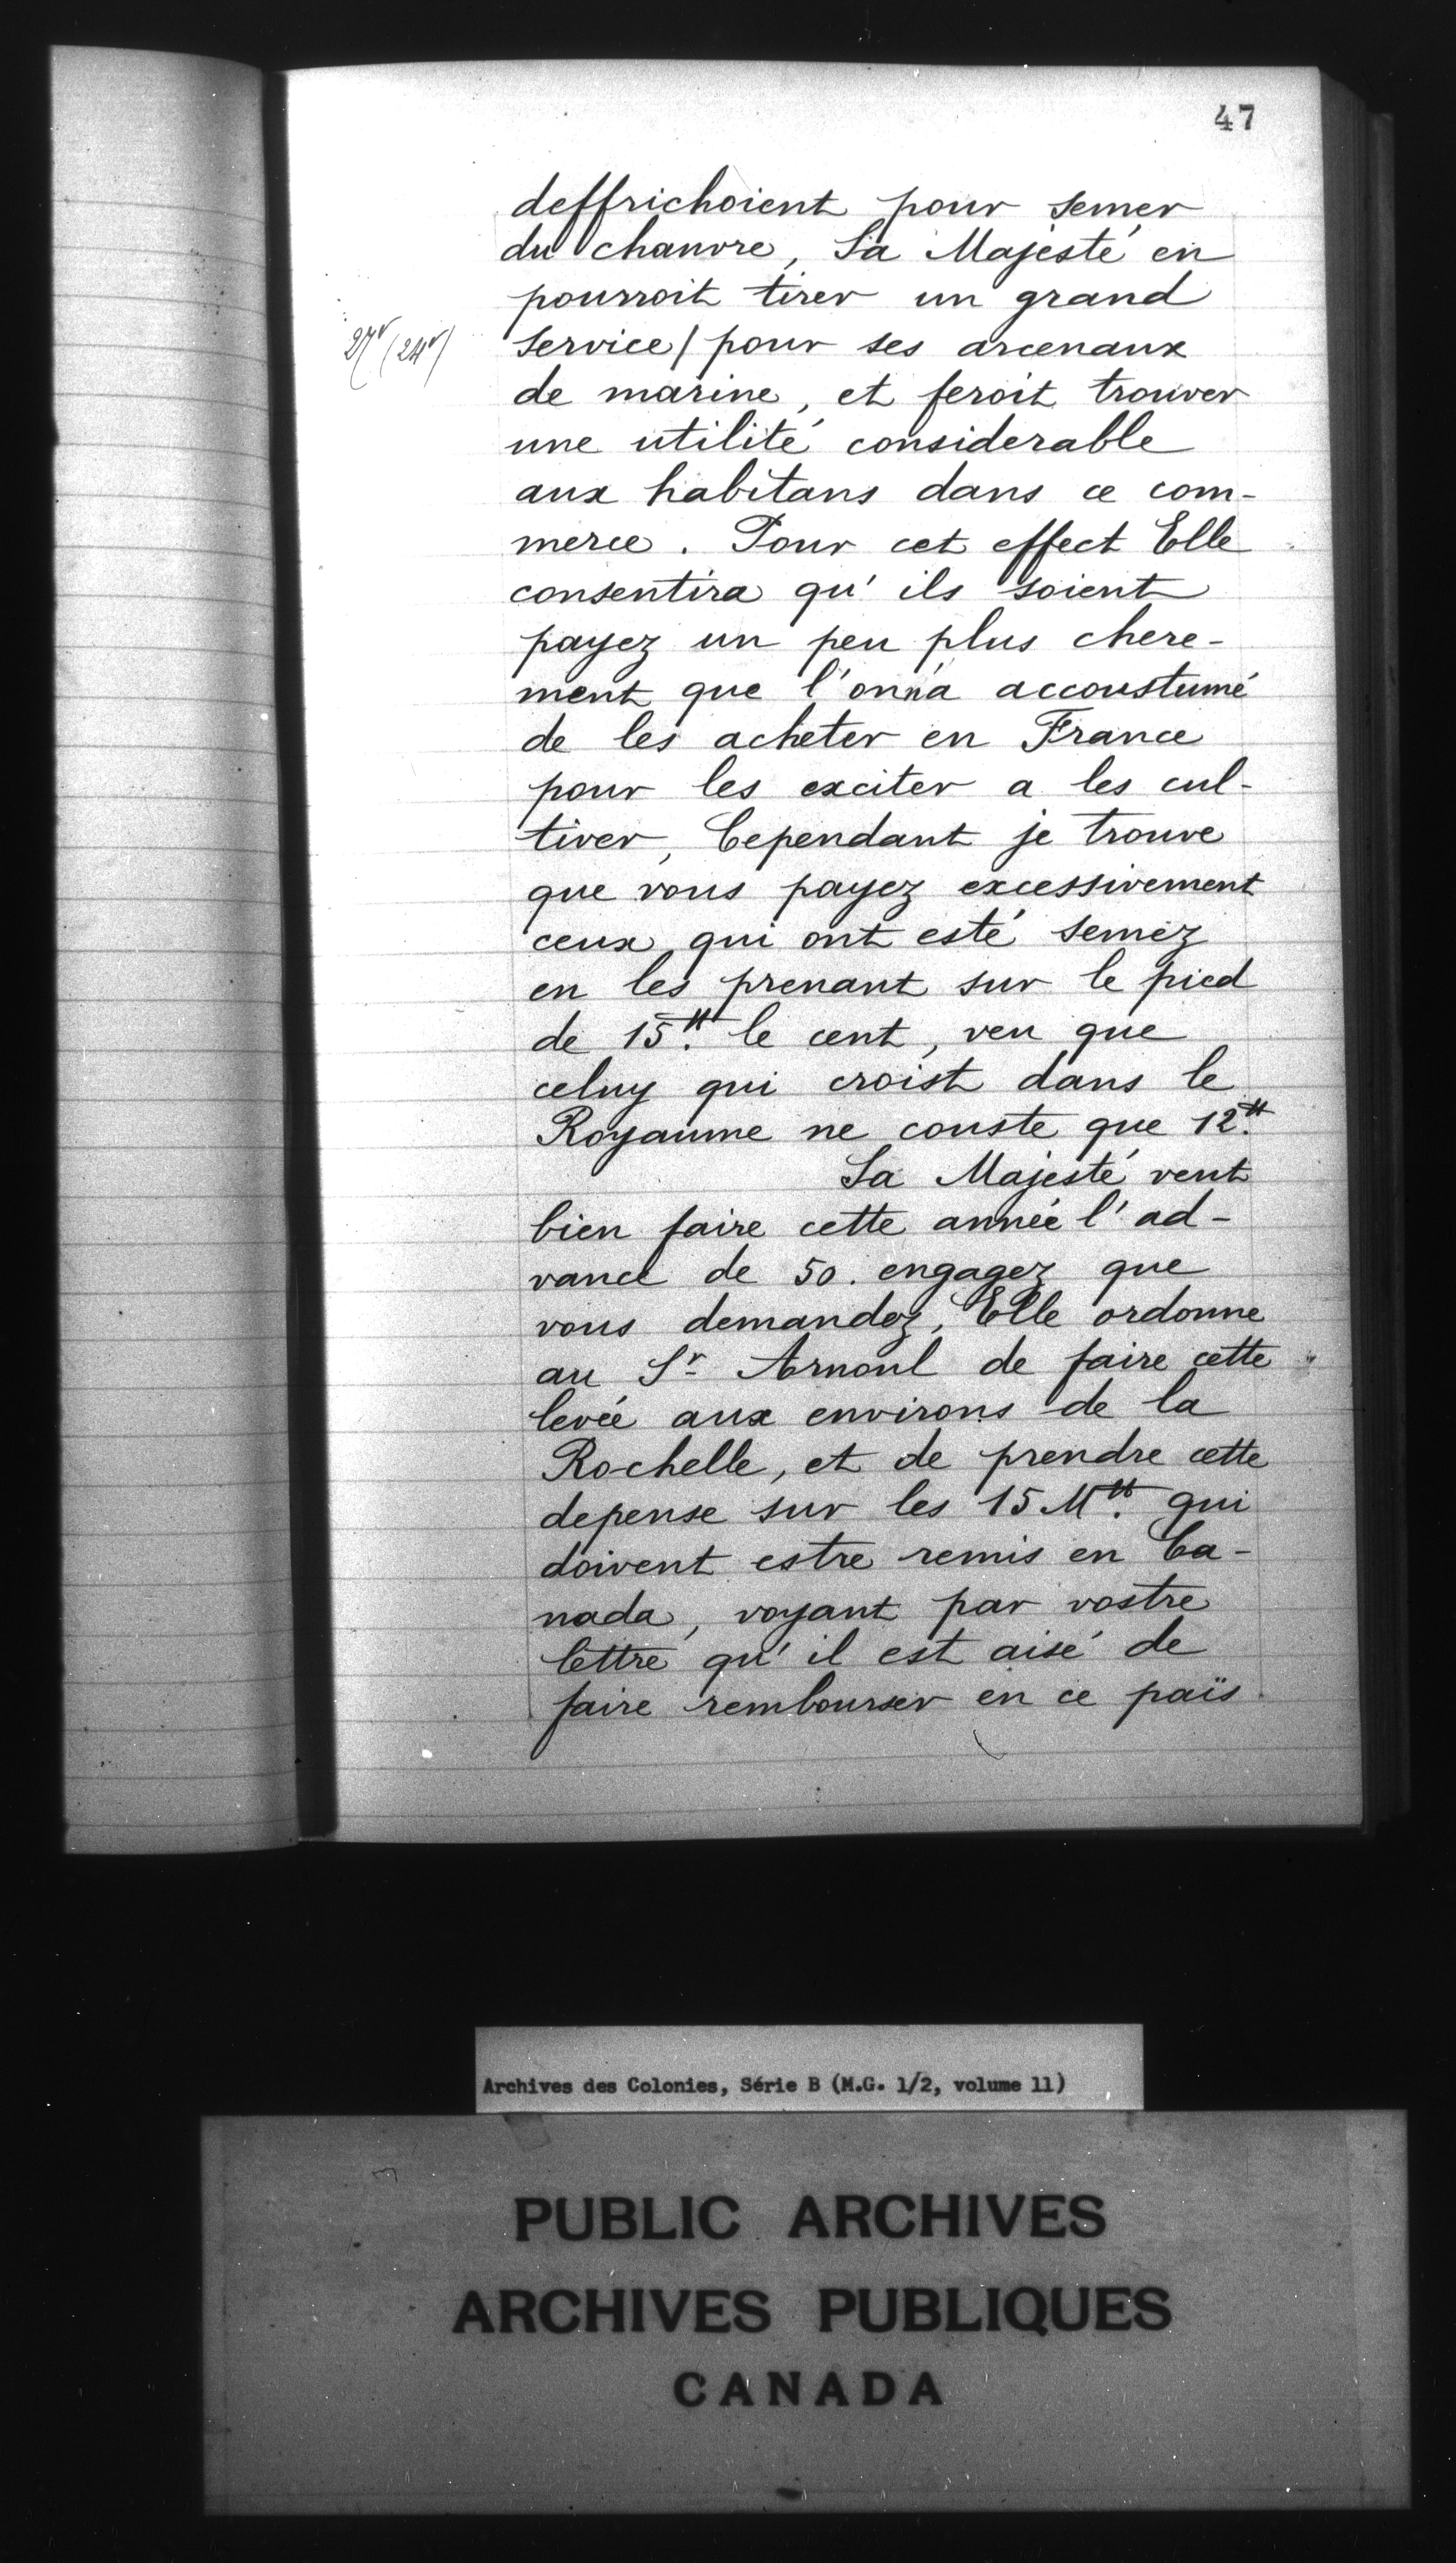 47
deffrichoient pour semer
du chanvre, Sa Majesté en
pourroit tirer un grand
27v (24v)
service/ pour ses arcenaux
de marine, et feroit trouver
une utilité considerable
aux habitans dans ce com-
merce. Pour cet effect Elle
consentira qu'ils soient
payez un peu plus chere-
ment que l'on n'a accoustumé
de les acheter en France
pour les exciter a les cul-
tiver, Cependant je trouve
que vous payez excessivement
ceux qui ont esté semez
en les prenant sur le pied
de 15.tt le cent, veu que
celuy qui croist dans le
Royaume ne couste que 12.tt
Sa Majesté veut
bien faire cette année l'ad-
vance de 50. engagez que
vous demandez, Elle ordonne
au Sr Arnoul de faire cette
levée aux environs de la
Rochelle, et de prendre cette
depense sur les 15 M.tt qui
doivent estre remis en Ca-
nada, voyant par vostre
lettre qu'il est aisé de
faire rembourser en ce païs
Archives des Colonies, Série B (M.G. 1/2, volume 11)
PUBLIC ARCHIVES
ARCHIVES PUBLIQUES
CANADA